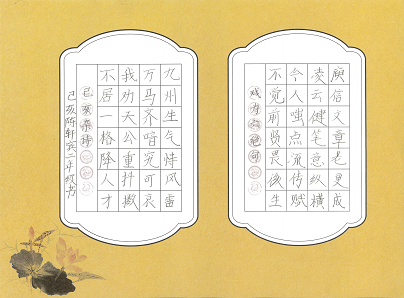 庾信文章老更成
凌云健笔意纵横
今人嗤点流传赋
不觉前贤畏後生
戏为六绝句
九州生气恃风雷
万马齐喑究可哀
我劝天公重抖擞
不居一格降人才
己亥杂诗
己亥陈轩二年级书